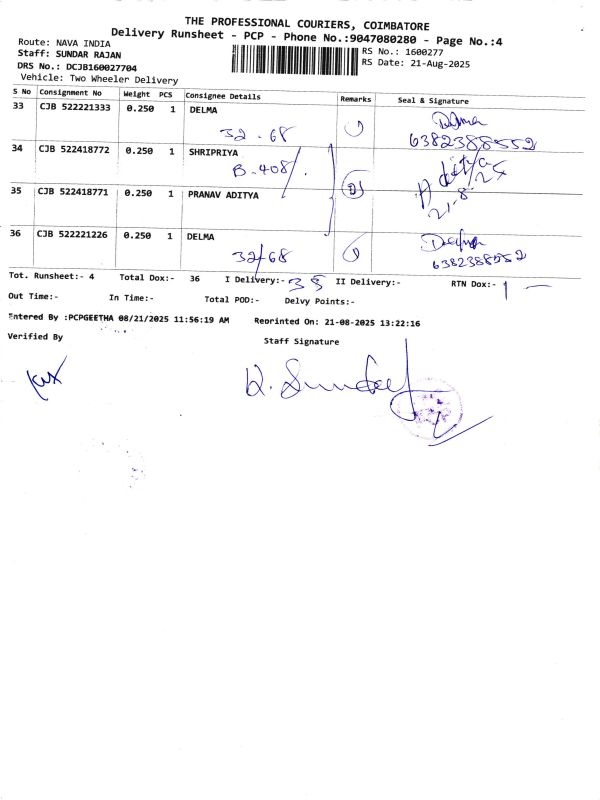 THE PROFESSIONAL COURIERS, COIMBATORE
Delivery Runsheet - PCP - Phone No.:9047080280 - Page No.:4
Route: NAVA INDIA
Staff: SUNDAR RAJAN
DRS No.: DCJB160027704
Vehicle: Two Wheeler Delivery
RS No.: 1600277
RS Date: 21-Aug-2025
S No Consignment No Weight PCS Consignee Details Remarks Seal & Signature
33 CJB 522221333 0.250 1 DELMA Delma
32-68 1 6382388552
34 CJB 522418772 0.250 1 SHRIPRIYA
B-408/ Aditya
35 CJB 522418771 0.250 1 PRANAV ADITYA 21-8-25
36 CJB 522221226 0.250 1 DELMA 1 Delma
32/68 6382388552
Tot. Runsheet:- 4 Total Dox:- 36 I Delivery:- 35 II Delivery:- RTN Dox:- 1 —
Out Time:- In Time:- Total POD:- Delvy Points:-
Entered By :PCPGEETHA 08/21/2025 11:56:19 AM Reprinted On: 21-08-2025 13:22:16
Verified By Staff Signature